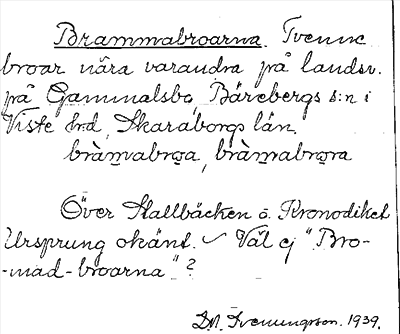 Brammabroarna. Tvenne
broar nära varandra på landsv.
på Gammalsbo, Bärebergs s:n i
Viste hrd, Skaraborgs län.
bràmabroa, bràmabrora
Över Stallbäcken o. Kronodiket
Ursprung okänt. Väl ej "Bro-
-mad-broarna"?
D.N. Svenungsson. 1939.